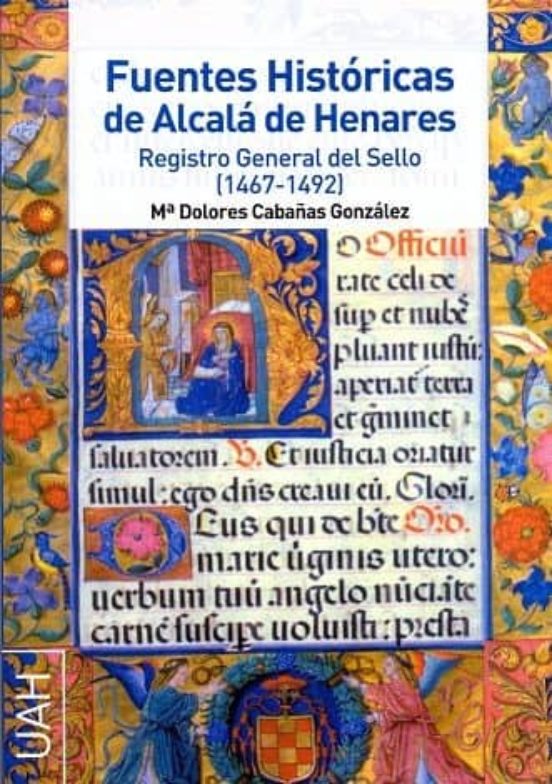 Fuentes Históricas
de Alcalá de Henares
Registro General del Sello
(1467-1492)
Mª Dolores Cabañas González
O Officiū
rate celi de
sup et nubē
pluant iustū:
aperiat terra
et gminet
saluatorem. V. Et iusticia oriatur
simul: ego dn̄s creaui eū. Glorī.
Deus qui de bt̄e Oro.
marie ūginis utero:
uerbum tuū angelo nūciāte
carnē suscipe uoluisti: presta
UAH